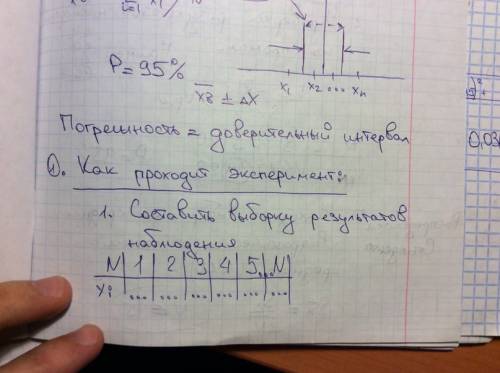 x₁ x₂ ... xₙ
P = 95%
x̄в ± Δx
Погрешность = доверительный интервал
①. Как проходит эксперимент:
1. Составить выборку результатов
наблюдения
N | 1 | 2 | 3 | 4 | 5...N |
xᵢ | ... | ... | ... | ... | ... ... |